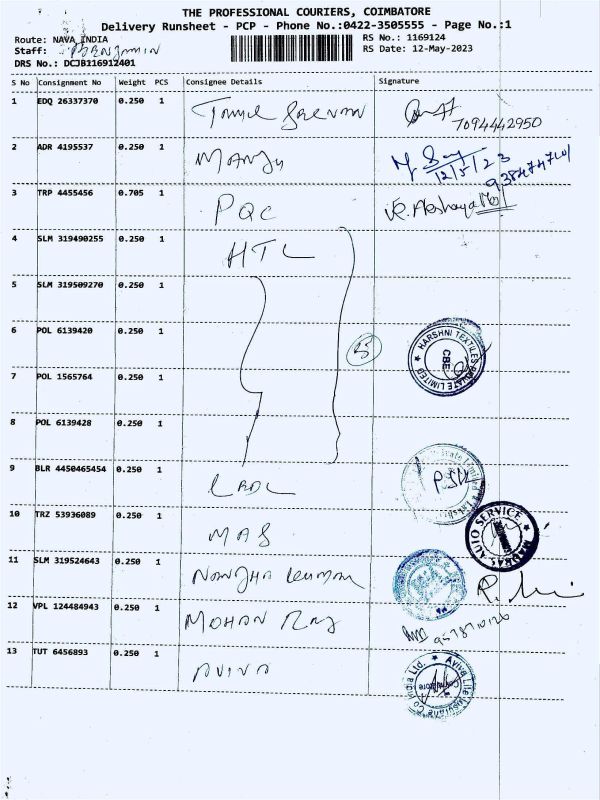 THE PROFESSIONAL COURIERS, COIMBATORE
Delivery Runsheet - PCP - Phone No.:0422-3505555 - Page No.:1
Route: NAVA INDIA
RS No.: 1169124
Staff: BENJAMIN
RS Date: 12-May-2023
DRS No.: DCJB116912401
S No Consignment No Weight PCS Consignee Details Signature
1 EDQ 26337370 0.250 1
7094442950
2 ADR 4195537 0.250 1 MANJU
12/5/23
3 TRP 4455456 0.705 1 PQC
4 SLM 319490255 0.250 1 HTL
5 SLM 319509270 0.250 1
6 POL 6139420 0.250 1
HARSHNI TEXTILES PRIVATE LIMITED
CBE
7 POL 1565764 0.250 1
8 POL 6139428 0.250 1
9 BLR 4450465454 0.250 1
10 TRZ 53936089 0.250 1 MAS
MADRAS AUTO SERVICE
11 SLM 319524643 0.250 1 NANDHA KUMAR
12 VPL 124484943 0.250 1 MOHAN RAJ
13 TUT 6456893 0.250 1 AVIVA
Aviva Life Insurance Co India Ltd.
Coimbatore